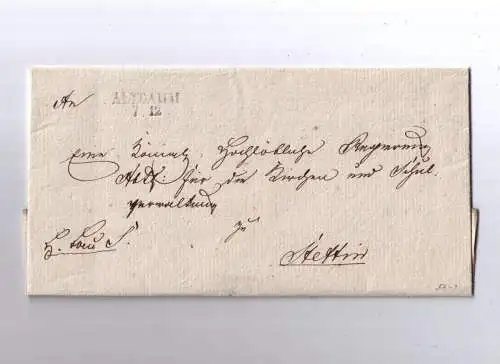 An
ALTDAMM
7 12
Eine Königl. Hochlöbliche Regierung
Abth: für die Kirchen und Schul-
verwaltung
zu
Stettin